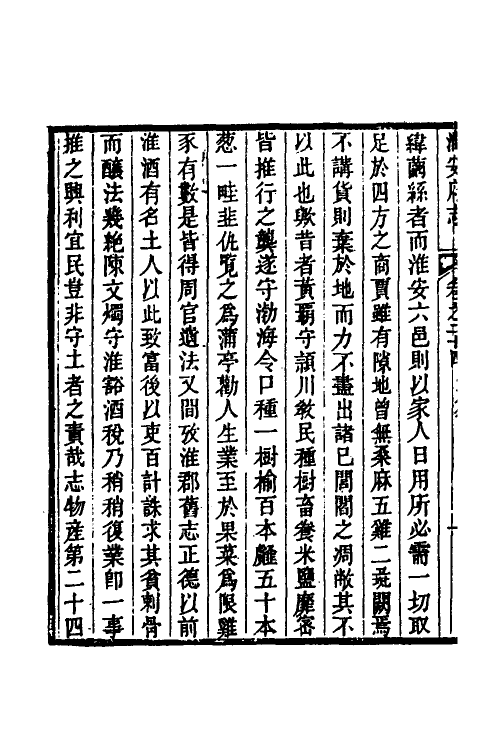 淮安府志
緯繭絲者而淮安六邑則以家人日用所必需一切取
足於四方之商賈雖有隙地曾無桑麻五雞二彘闕焉
不講貨則棄於地而力不盡出諸已閭閻之凋敝其不
以此也歟昔者黃霸守潁川敎民種樹畜養米鹽靡密
皆推行之龔遂守渤海令口種一樹榆百本薤五十本
葱一畦韭仇覧之爲蒲亭勸人生業至於果菜爲限雞
豕有數是皆得周官遺法又間攷淮郡舊志正德以前
淮酒有名土人以此致富後以吏百計誅求其貧刺骨
而釀法幾絶陳文燭守淮豁酒稅乃稍稍復業卽一事
推之興利宜民豈非守土者之責哉志物産第二十四